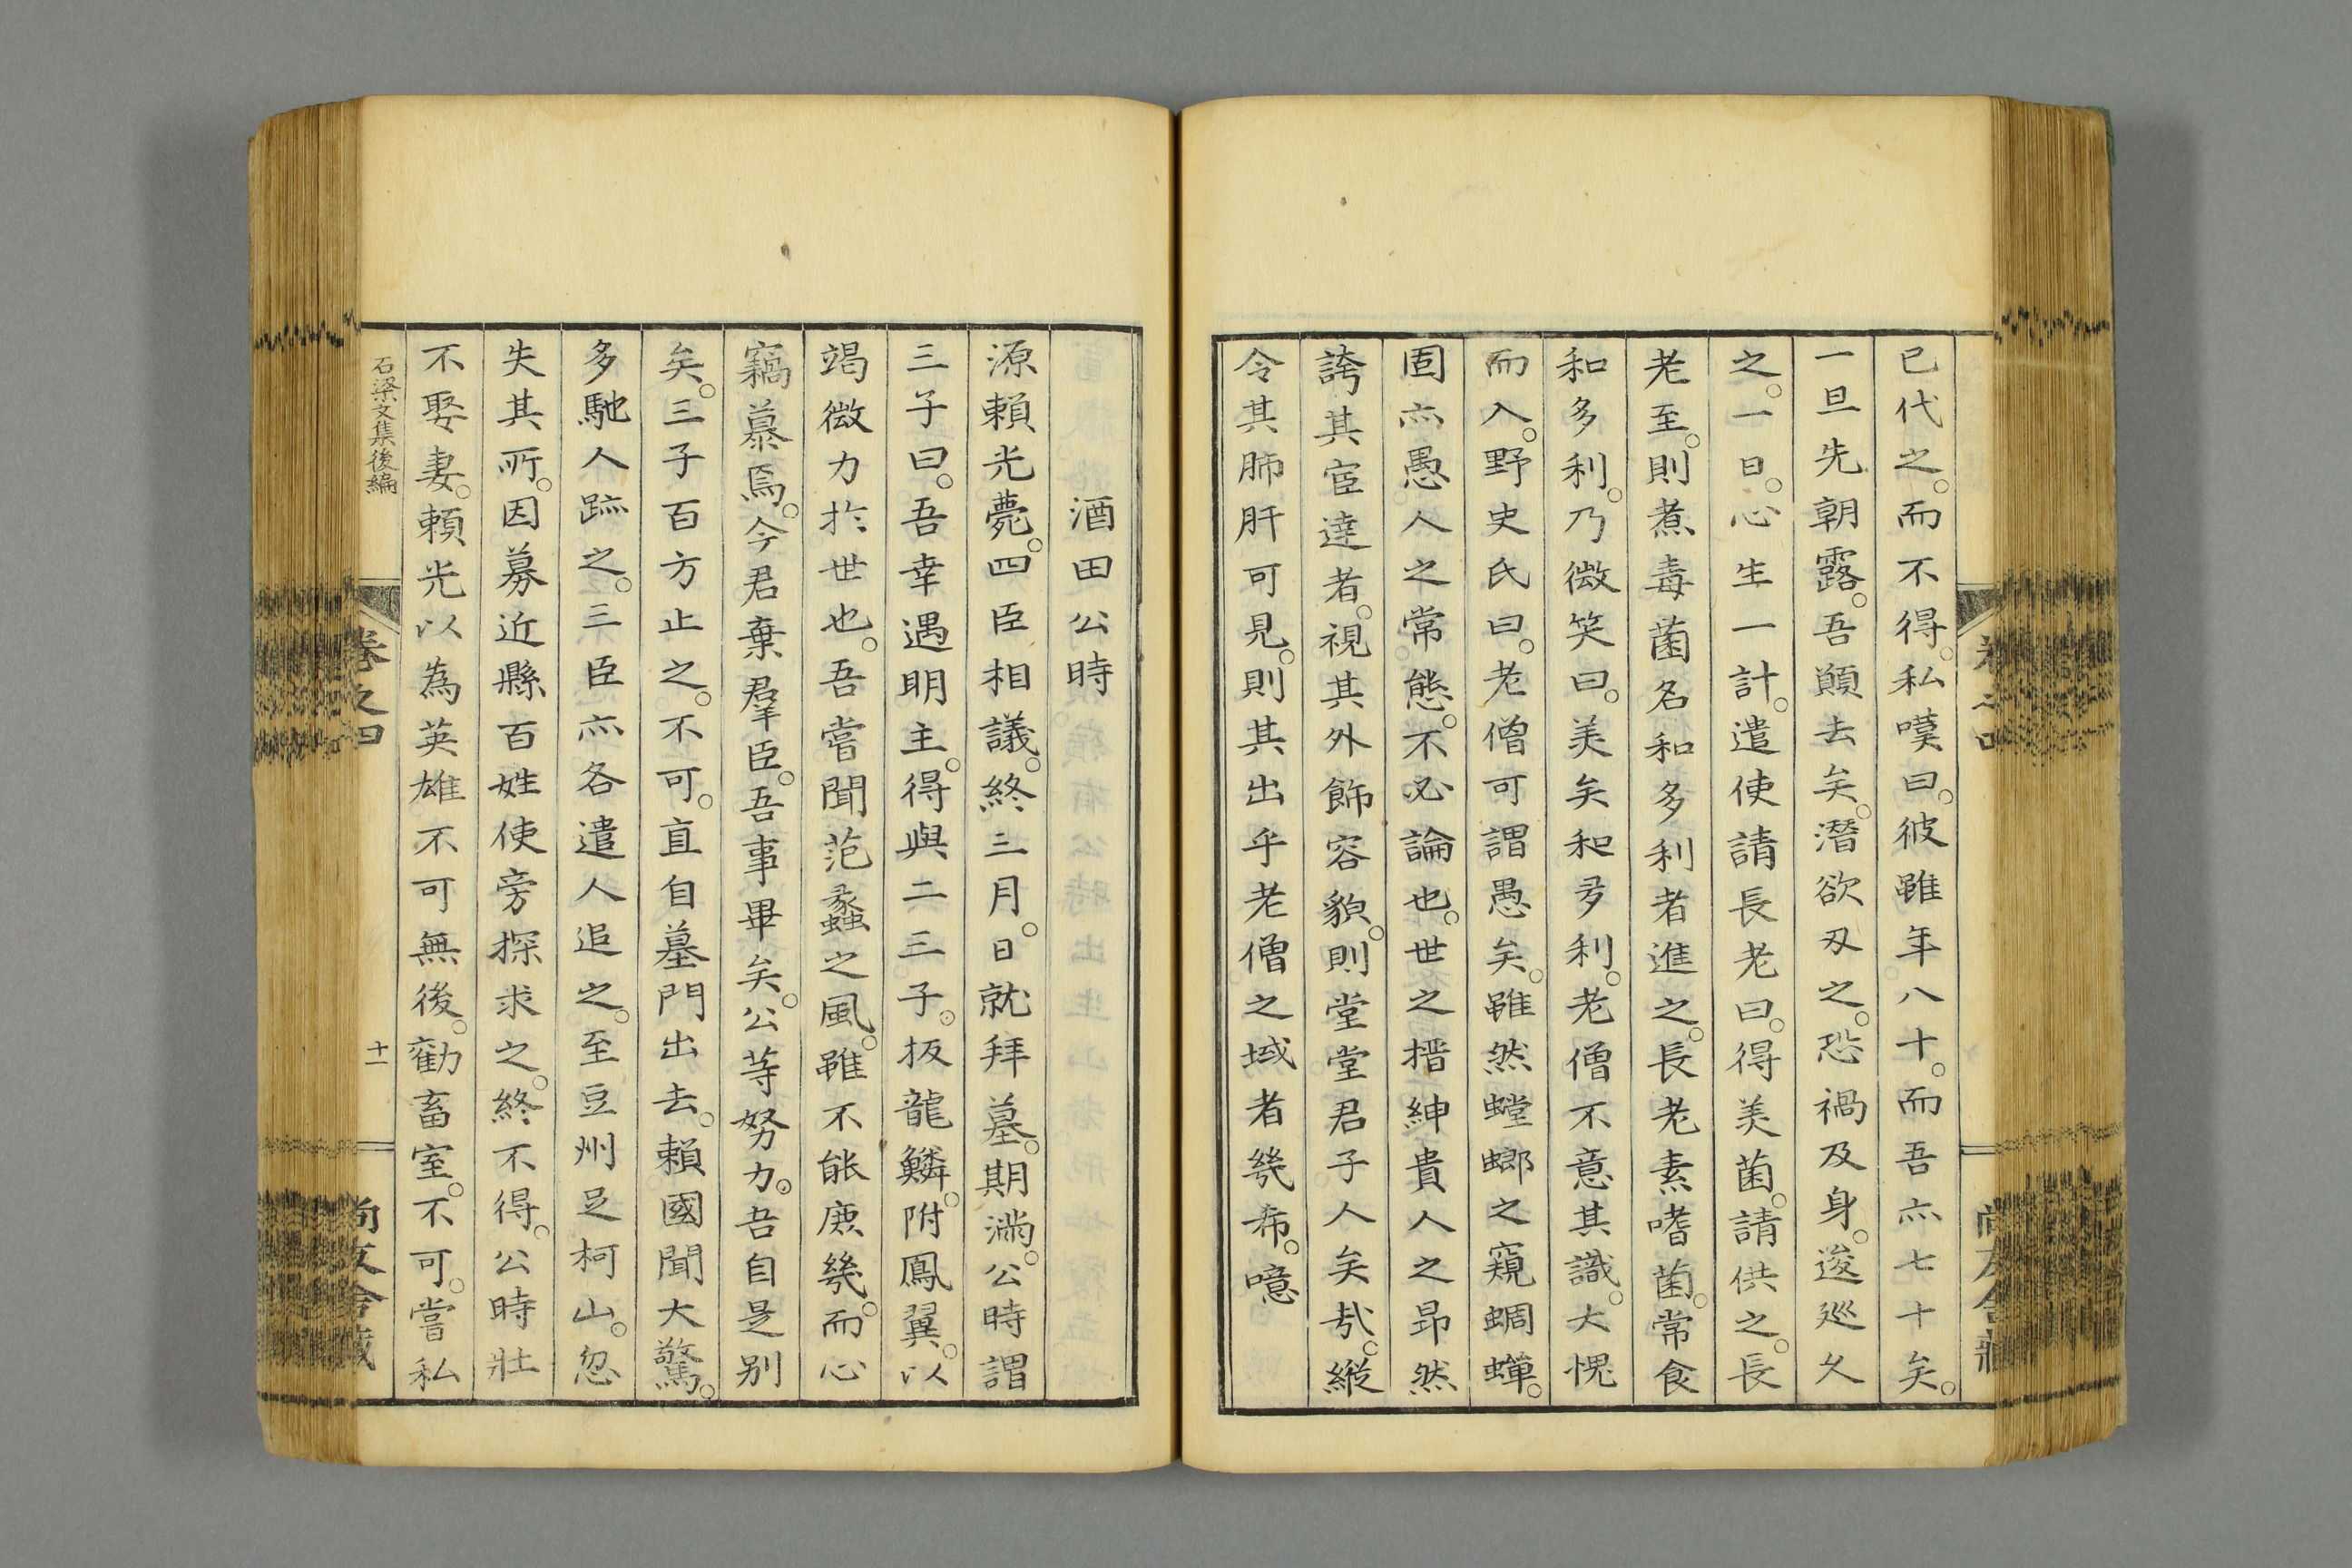 已代之。而不得。私嘆曰。彼雖年八十。而吾亦七十矣。
一旦先朝露。吾顚去矣。潛欲刃之。恐禍及身。逡巡久
之。一日。心生一計。遣使請長老曰。得美菌。請供之。長
老至。則煮毒菌名和多利者進之。長老素嗜菌。常食
和多利。乃微笑曰。美矣和多利。老僧不意其識。大愧
而入。野史氏曰。老僧可謂愚矣。雖然螳螂之窺蜩蟬。
固亦愚人之常態。不必論也。世之搢紳貴人之昂然
誇其宦達者。視其外飾容貌。則堂堂君子人矣哉。縱
令其肺肝可見。則其出乎老僧之域者幾希。噫
酒田公時
源賴光薨。四臣相議。終三月。日就拜墓。期滿。公時謂
三子曰。吾幸遇明主。得與二三子。扳龍鱗。附鳳翼。以
竭微力於世也。吾嘗聞范蠡之風。雖不能庶幾。而心
竊慕焉。今君棄羣臣。吾事畢矣。公等努力。吾自是別
矣。三子百方止之。不可。直自墓門出去。賴國聞大驚。
多馳人跡之。三臣亦各遣人追之。至豆州足柯山。忽
失其所。因募近縣百姓使旁探求之。終不得。公時壯
不娶妻。賴光以為英雄不可無後。勸畜室。不可。嘗私
石梁文集後編
卷之四
十一